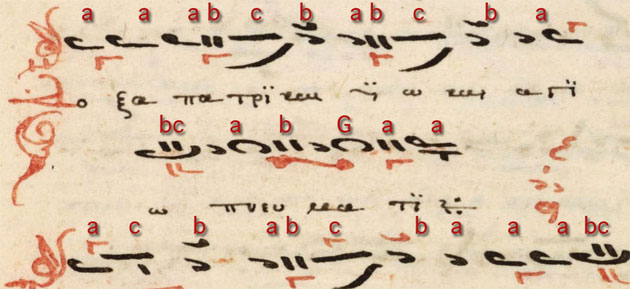 a a a b c b a b c b a
ο ξα πα τρϊ και ϋ ω και α γϊ
bc a b G a a
ω πνευ μα τϊ
a c b a b c b a a a bc